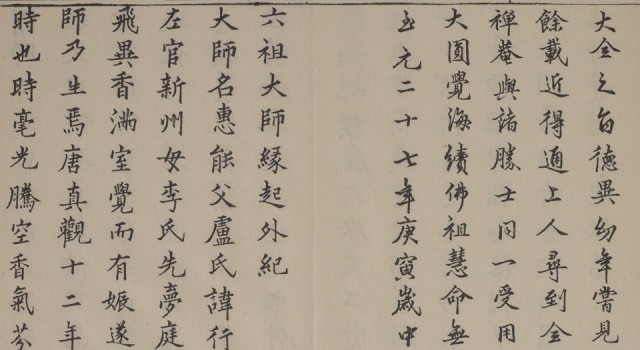 大全之旨德異幼年嘗見
餘載近得通上人尋到全
禅菴與諸勝士同一受用
大圓覺海續佛祖慧命無
至元二十七年庚寅歲中
六祖大師縁起外紀
大師名惠能父盧氏諱行
左官新州母李氏先夢庭
飛異香滿室覺而有娠遂
師乃生焉唐真觀十二年
時也時毫光騰空香氣芬